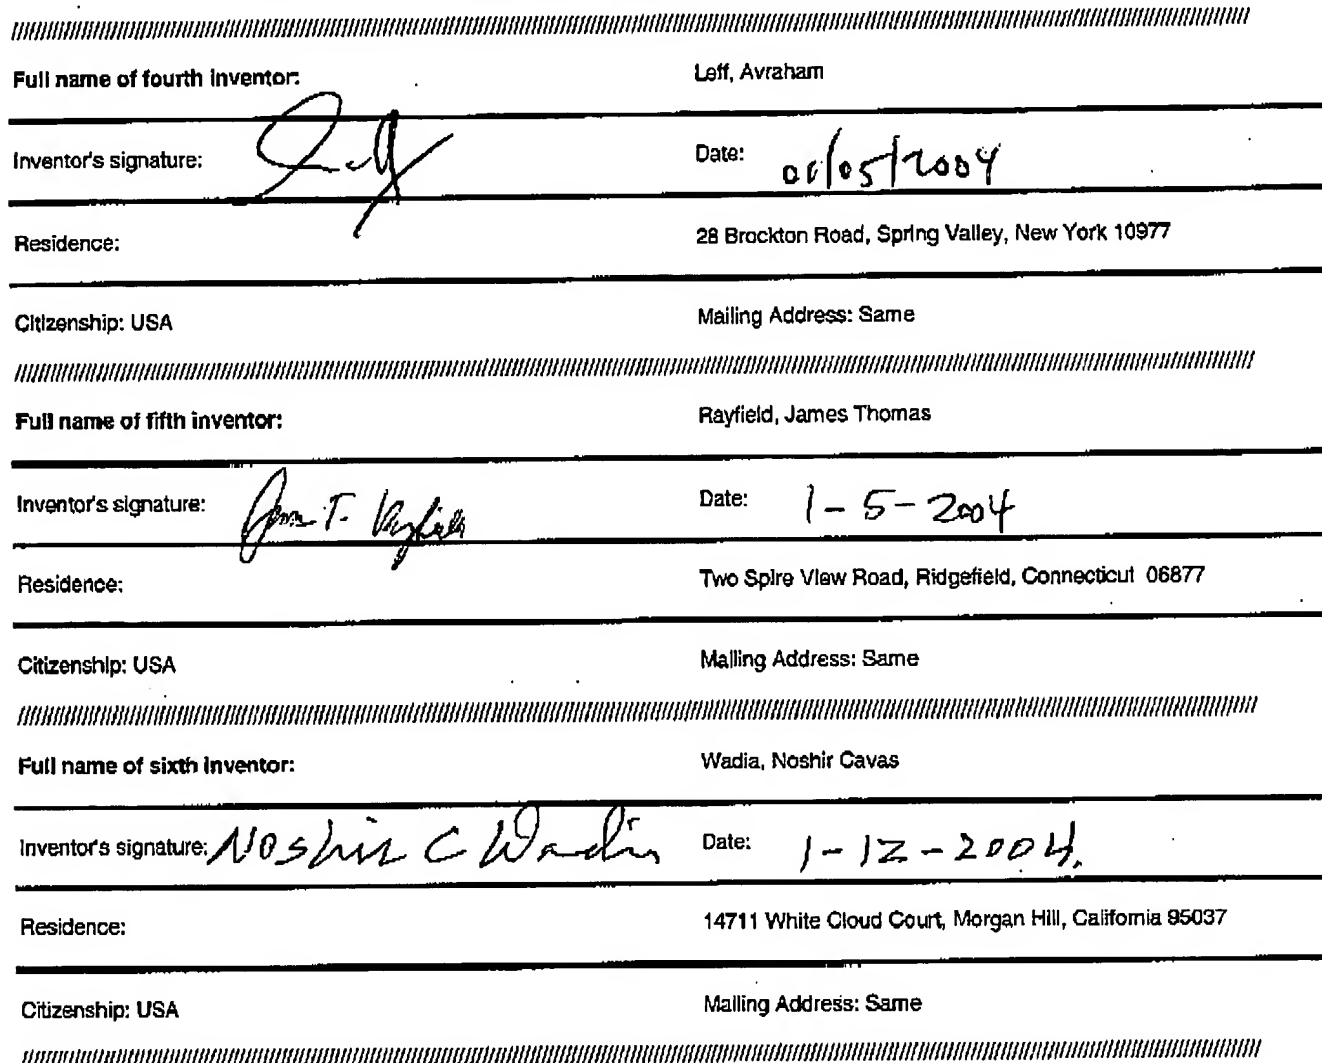 Full name of fourth inventor: Leff, Avraham
Inventor's signature: Date: 01/05/2004
Residence: 28 Brockton Road, Spring Valley, New York 10977
Citizenship: USA Mailing Address: Same
Full name of fifth inventor: Rayfield, James Thomas
Inventor's signature: James T. Rayfield Date: 1-5-2004
Residence: Two Spire View Road, Ridgefield, Connecticut 06877
Citizenship: USA Mailing Address: Same
Full name of sixth inventor: Wadia, Noshir Cavas
Inventor's signature: Noshir C Wadia Date: 1-12-2004.
Residence: 14711 White Cloud Court, Morgan Hill, California 95037
Citizenship: USA Mailing Address: Same